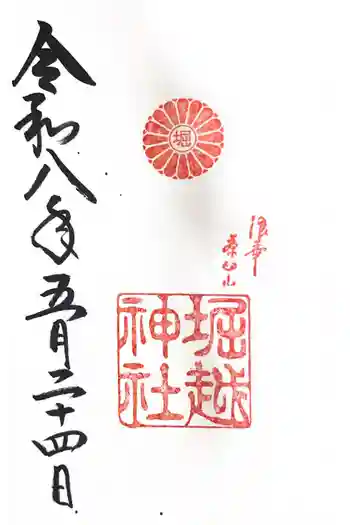 堀
浪華
茶臼山
堀越
神社
令和八年五月二十四日